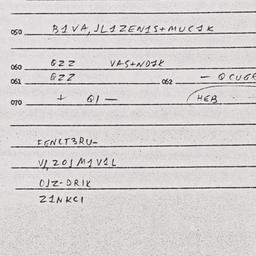 050 B1VA, JL1ZEN1S+MUC1K
060 GZZ VAS+ND1K
061 GZZ 062 — QCUGE
070 + Q1 — HEB
FENCT3RU-
V1,20J M1V1L
O1Z-DR1K
Z1NKC1